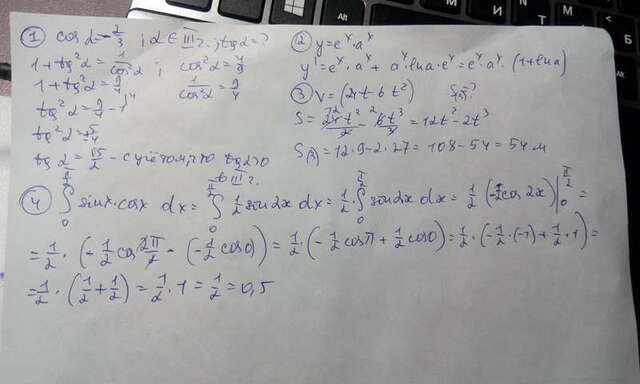 ① cos α = -2/3 ; α ∈ III ч. ; tg α = ?
1 + tg²α = 1/cos²α ; cos²α = 4/9
1 + tg²α = 9/4 1/cos²α = 9/4
tg²α = 9/4 - 1
tg²α = 5/4
tg α = √5/2 - с учётом, что tg α > 0
в III ч.
② y = eˣ · aˣ
y' = eˣ · aˣ + aˣ ln a · eˣ = eˣ · aˣ · (1 + ln a)
③ V = (24t - 6t²) S(3) = ?
S = 24t²/2 - 6t³/3 = 12t² - 2t³
S(3) = 12 · 9 - 2 · 27 = 108 - 54 = 54 м
④ ∫₀^(π/2) sin x · cos x dx = ∫₀^(π/2) 1/2 sin 2x dx = 1/2 · ∫₀^(π/2) sin 2x dx = 1/2 (-1/2 cos 2x) |₀^(π/2) =
= 1/2 · (-1/2 cos 2π/2 - (-1/2 cos 0)) = 1/2 · (-1/2 cos π + 1/2 cos 0) = 1/2 · (-1/2 · (-1) + 1/2 · 1) =
= 1/2 · (1/2 + 1/2) = 1/2 · 1 = 1/2 = 0,5
Alt